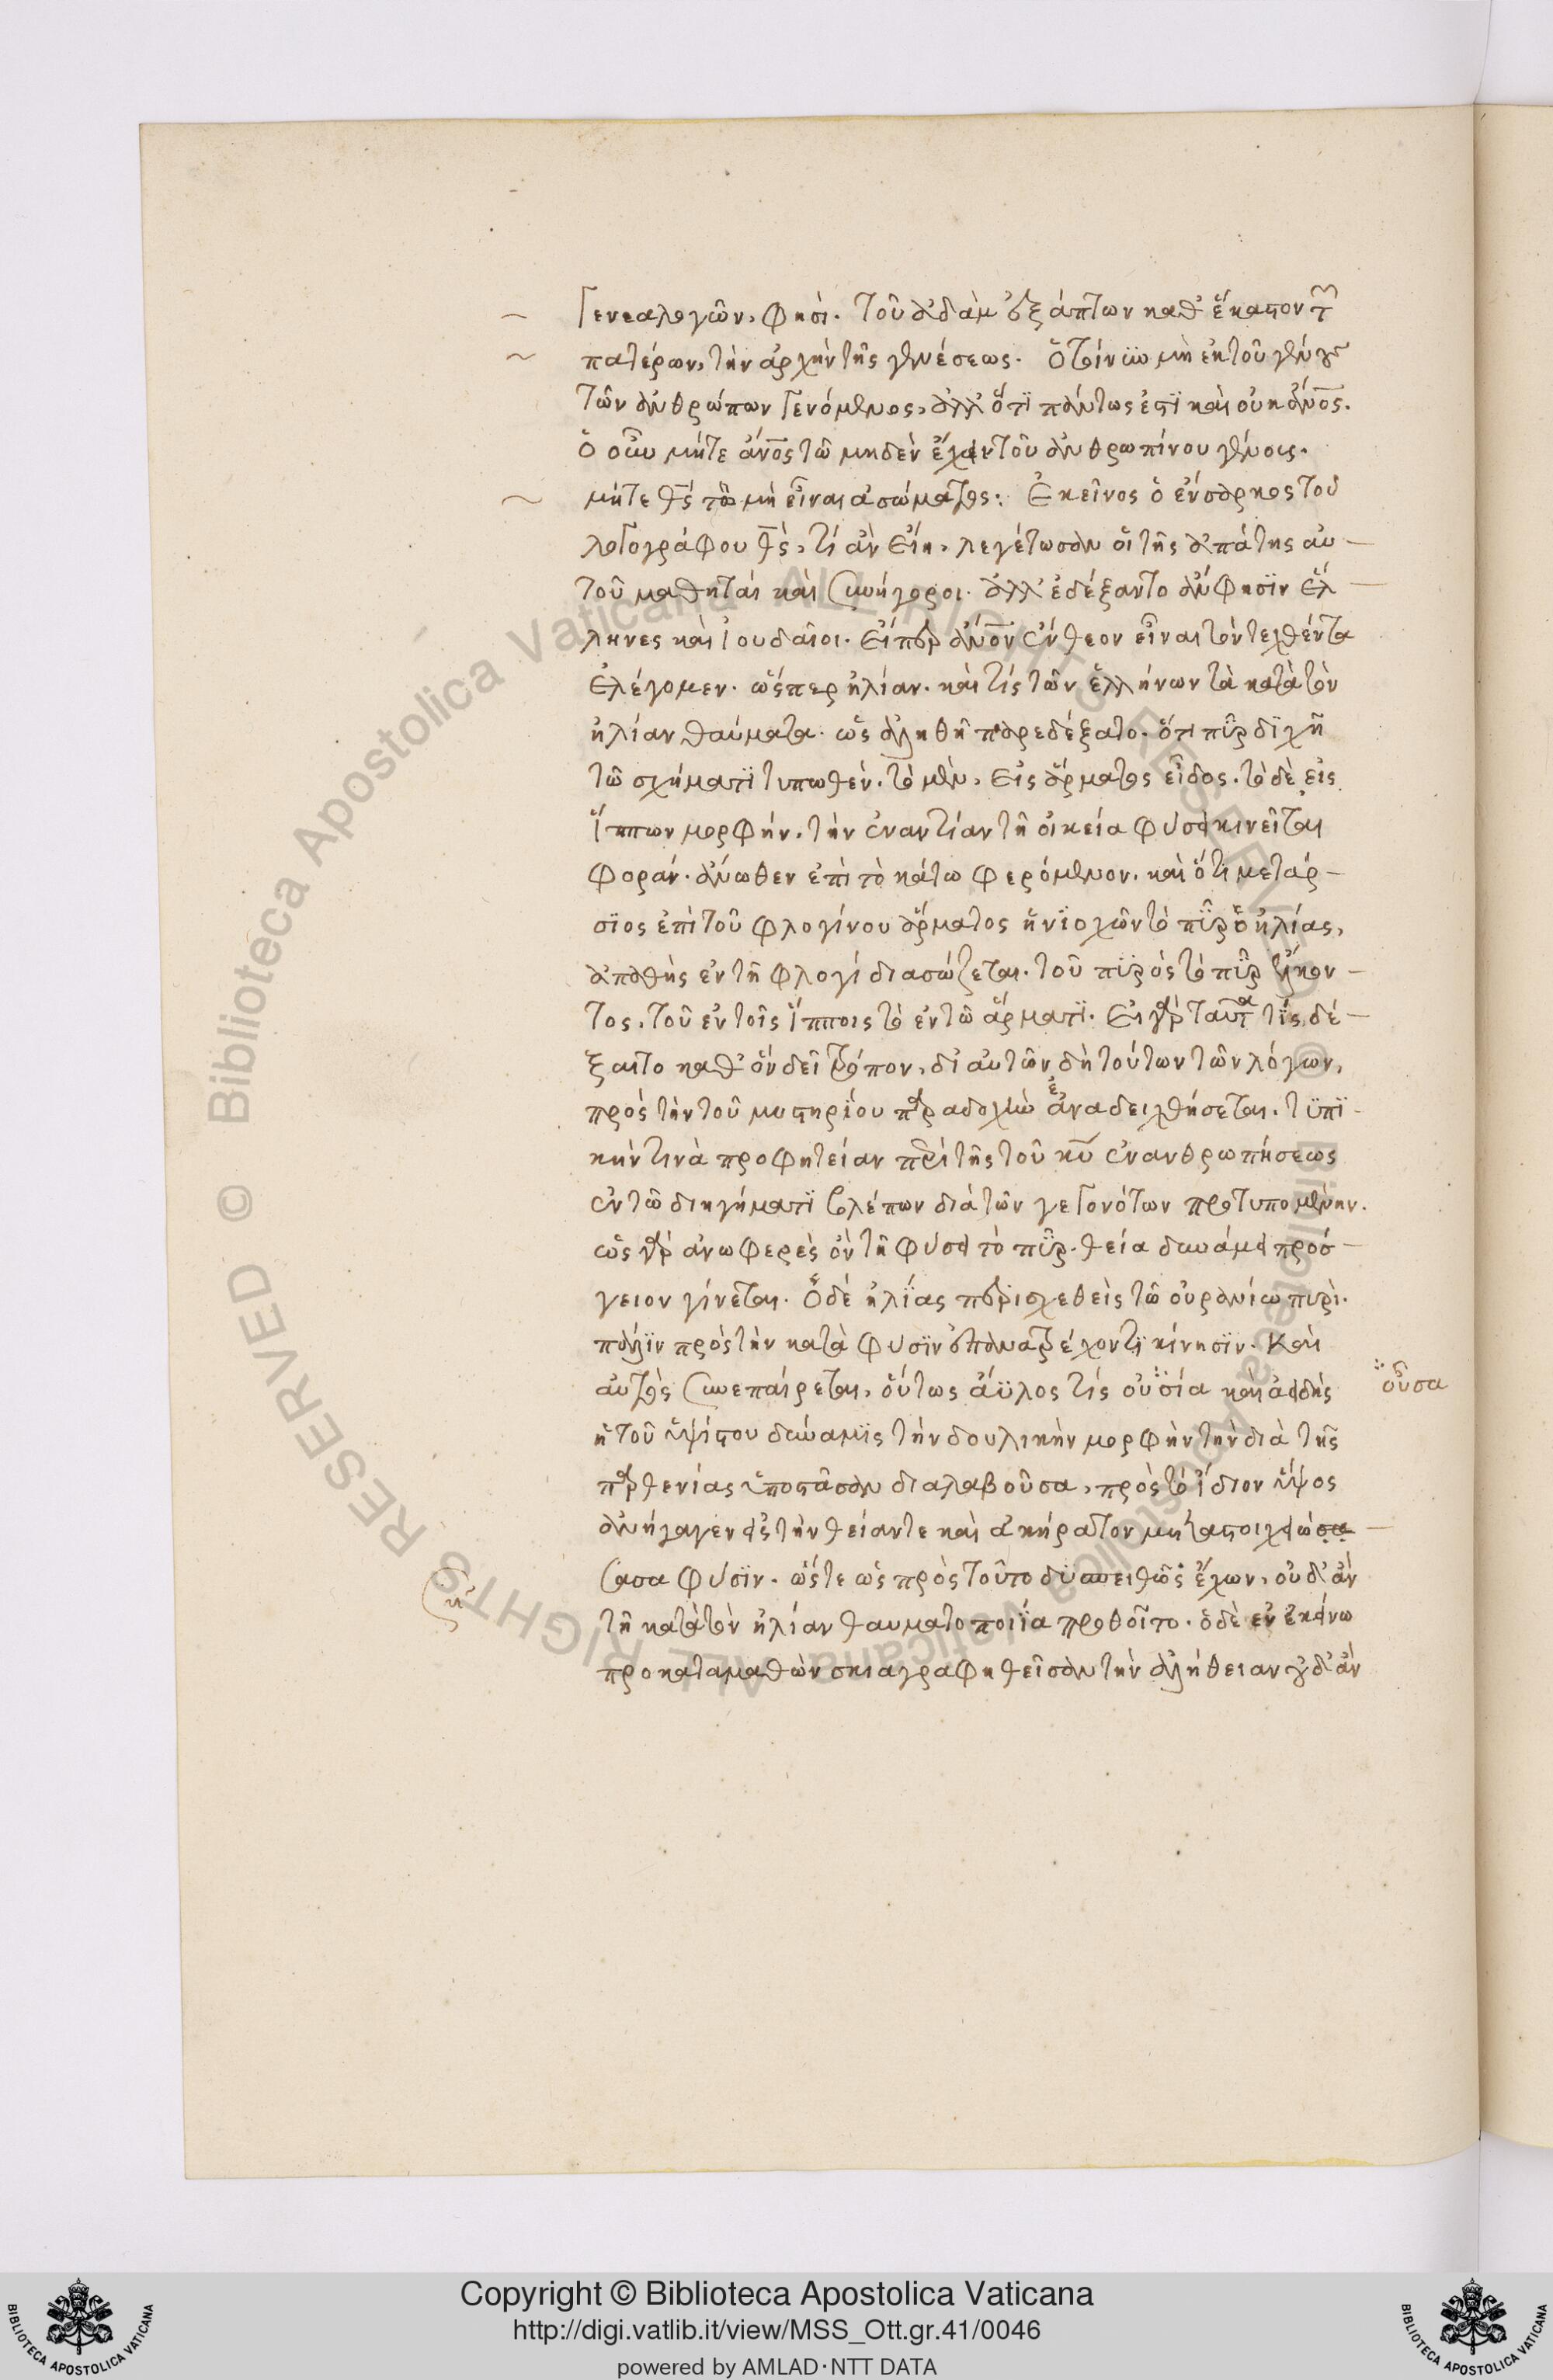 Γενεαλογῶν, φησὶ. τοῦ ἀδὰμ ἐξάπτων καθ' ἕκαστον τ͂
πατέρων, τὴν ἀρχὴν τῆς γενέσεως. ὁ τοίνυν μὴ ἐκ τοῦ γένους
τῶν ἀνθρώπων Γενόμενος, ἄλλ' ὅτϊ πάντως ἐστϊ καὶ οὐκ ἄν̅ος.
ὁ οὖν μήτε ἄν̅ος τῶ μηδὲν ἔχειν τοῦ ἀνθρωπίνου γένους.
μήτε θ̅ς τῶ μὴ εἶναι ἀσώματος: Ἐκεῖνος ὁ ἔνσαρκος τοῦ
λογογράφου θ̅ς, τί ἂν εἴη, λεγέτωσαν οἱ τῆς ἀπάτης αὐ-
τοῦ μαθηταὶ καὶ συνήγοροι. ἀλλ' ἐδέξαντο ἄν φησϊν ἕλ-
ληνες καὶ Ἰουδαῖοι. εἴπερ ἄν̅ον ἔνθεον εἶναι τὸν τεχθέντα
ἐλέγομεν. ὥσπερ ἠλίαν. καὶ τίς τῶν ἑλλήνων τὰ κατὰ τὸν
ἠλίαν θαύματα. ὡς ἀληθῆ παρεδέξατο. ὅτι πῦρ διχῆ
τῶ σχήματϊ τυπωθὲν. τὸ μὲν, εἰς ἅρματος εἶδος. τὸ δὲ εἰς
ἵππων μορφήν. τὴν ἐναντίαν τῆ οἰκεία φύσει κινεῖται
φοράν. ἄνωθεν ἐπὶ τὸ κάτω φερόμενον. καὶ ὅτι μετάρ-
σϊος ἐπὶ τοῦ φλογίνου ἅρματος ἡνϊοχῶν τὸ πῦρ ὁ ἠλίας,
ἀπαθὴς ἐν τῆ φλογί διασώζεται. τοῦ πϋρός τὸ πῦρ ἥκον-
τος, τοῦ ἐν τοῖς ἵπποις τὸ ἐν τῶ ἅρματϊ. εἰ γὰρ ταῦτα τὶς δέ-
ξαιτο καθ' ὃν δεῖ τρόπον, δι' αὐτῶν δὴ τούτων τῶν λόγων,
πρὸς τὴν τοῦ μυστηρίου παραδοχὴν ἐναναδειχθήσεται. τϋπϊ-
κήν τινὰ προφητείαν περὶ τῆς τοῦ κ̅υ ἐνανθρωπήσεως
ἐν τῶ διηγήματϊ βλέπων διὰ τῶν γεγονότων προτυπομένην.
ὡς γὰρ ἀνωφερὲς ὂν τῆ φύσει τὸ πῦρ. θεία δυνάμει πρόσ-
γειον γίνεται. ὁ δὲ ἠλίας περισχεθεὶς τῶ οὐρανίω πυρὶ.
πάλϊν πρὸς τὴν κατὰ φύσϊν ἐπανατρέχοντϊ κίνησϊν. Καὶ
αὐτὸς συνεπαίρεται, οὕτως ἄϋλος τίς οὐσία καὶ ἀειδὴς
οὖσα
ἡ τοῦ ὑψίστου δύναμϊς τὴν δουλικὴν μορφὴν τὴν διὰ τῆς
παρθενίας ὑποστᾶσαν διαλαβοῦσα, πρὸς τὸ ἴδιον ὕψος
ἀνήγαγεν εἰς τὴν θείαν τε καὶ ἀκήρατον μεταστοιχειώσα
σασα φύσϊν. ὥστε ὡς πρὸς τοῦτο δϋσπειθῶς ἔχων, οὐδ' ἂν
τῆ κατὰ τὸν ἠλίαν θαυματοποιΐα προσθοῖτο. ὁ δὲ ἐν ἐκείνω
προκαταμαθὼν σκιαγραφηθεῖσαν τὴν ἀλήθειαν οὐδ' ἂν
Copyright © Biblioteca Apostolica Vaticana
http://digi.vatlib.it/view/MSS_Ott.gr.41/0046
powered by AMLAD·NTT DATA